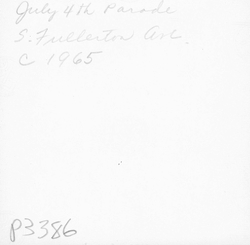 July 4th Parade
S. Fullerton Ave.
C 1965
P3386